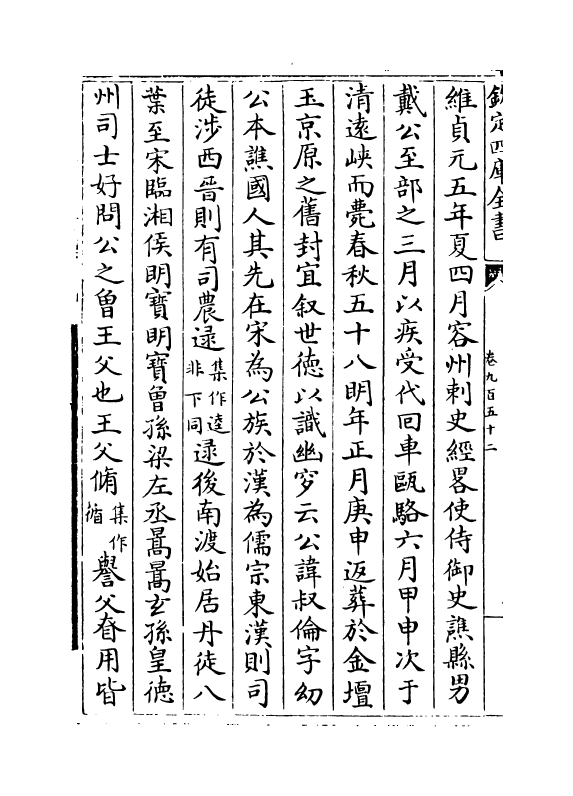 欽定四庫全書
卷九百五十二
維貞元五年夏四月容州刺史經畧使侍御史譙縣男
戴公至部之三月以疾受代回車甌駱六月甲申次于
清逺峽而薨春秋五十八明年正月庚申返葬於金壇
玉京原之舊封宜叙世徳以識幽穸云公諱叔倫字幼
公本譙國人其先在宋為公族於漢為儒宗東漢則司
徒涉西晋則有司農逯集作逵非下同逯後南渡始居丹徒八
葉至宋臨湘侯明寳明寳曾孫梁左丞暠暠玄孫皇徳
州司士好問公之曾王父也王父脩集作循譽父昚用皆